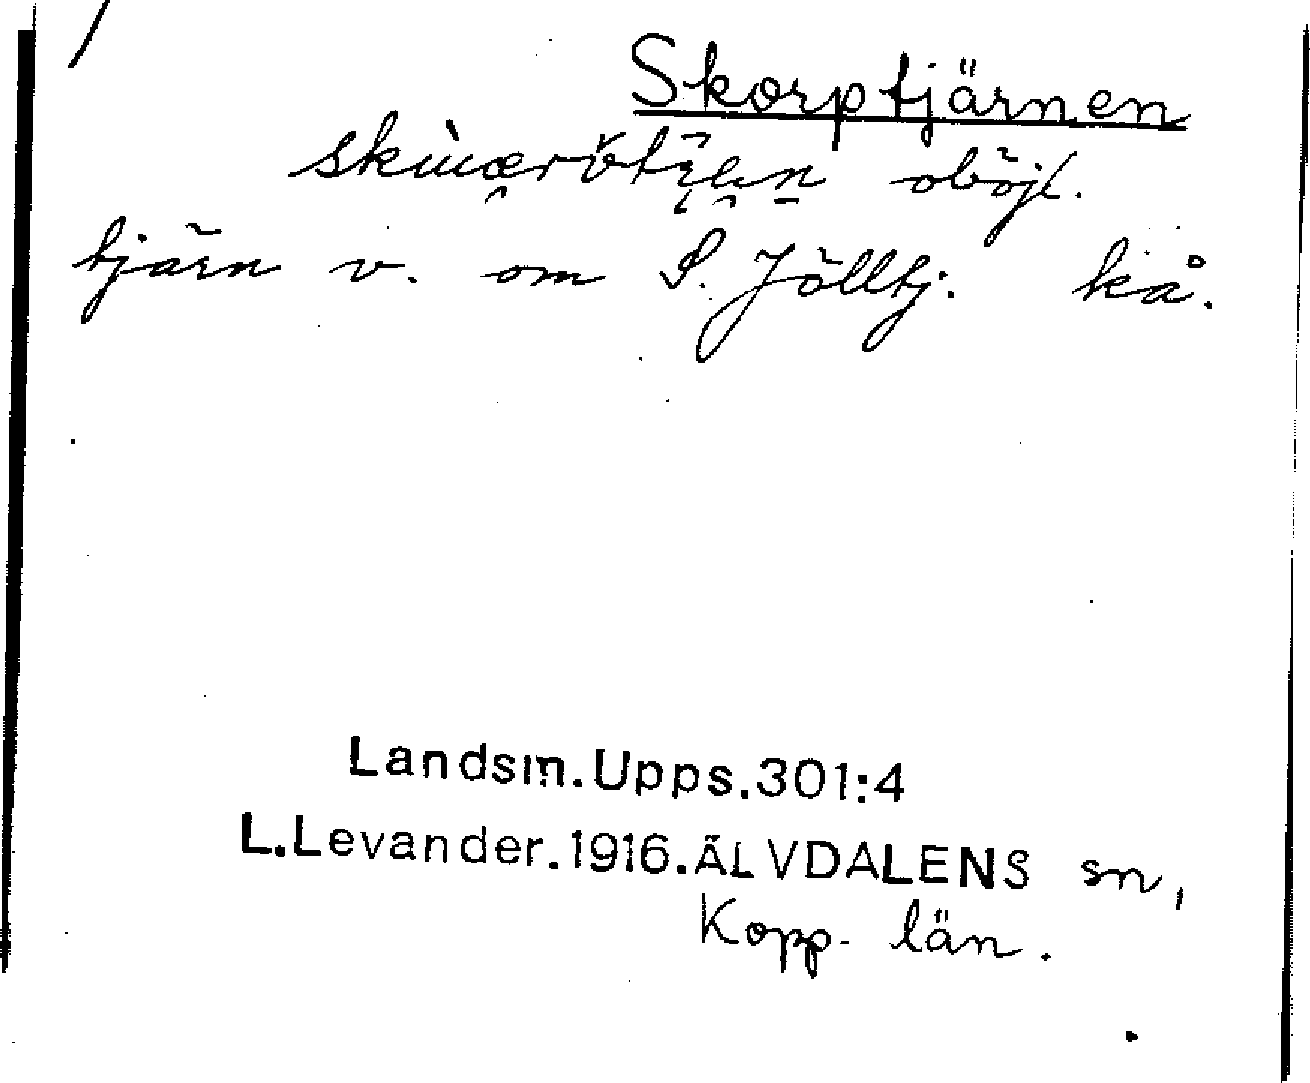 Skorptjärnen
oböjl.
tjärn v. om S. Jölltj. kå.
Landsm.Upps.301:4
L.Levander.1916.ÄLVDALENS sn,
Kopp. län.